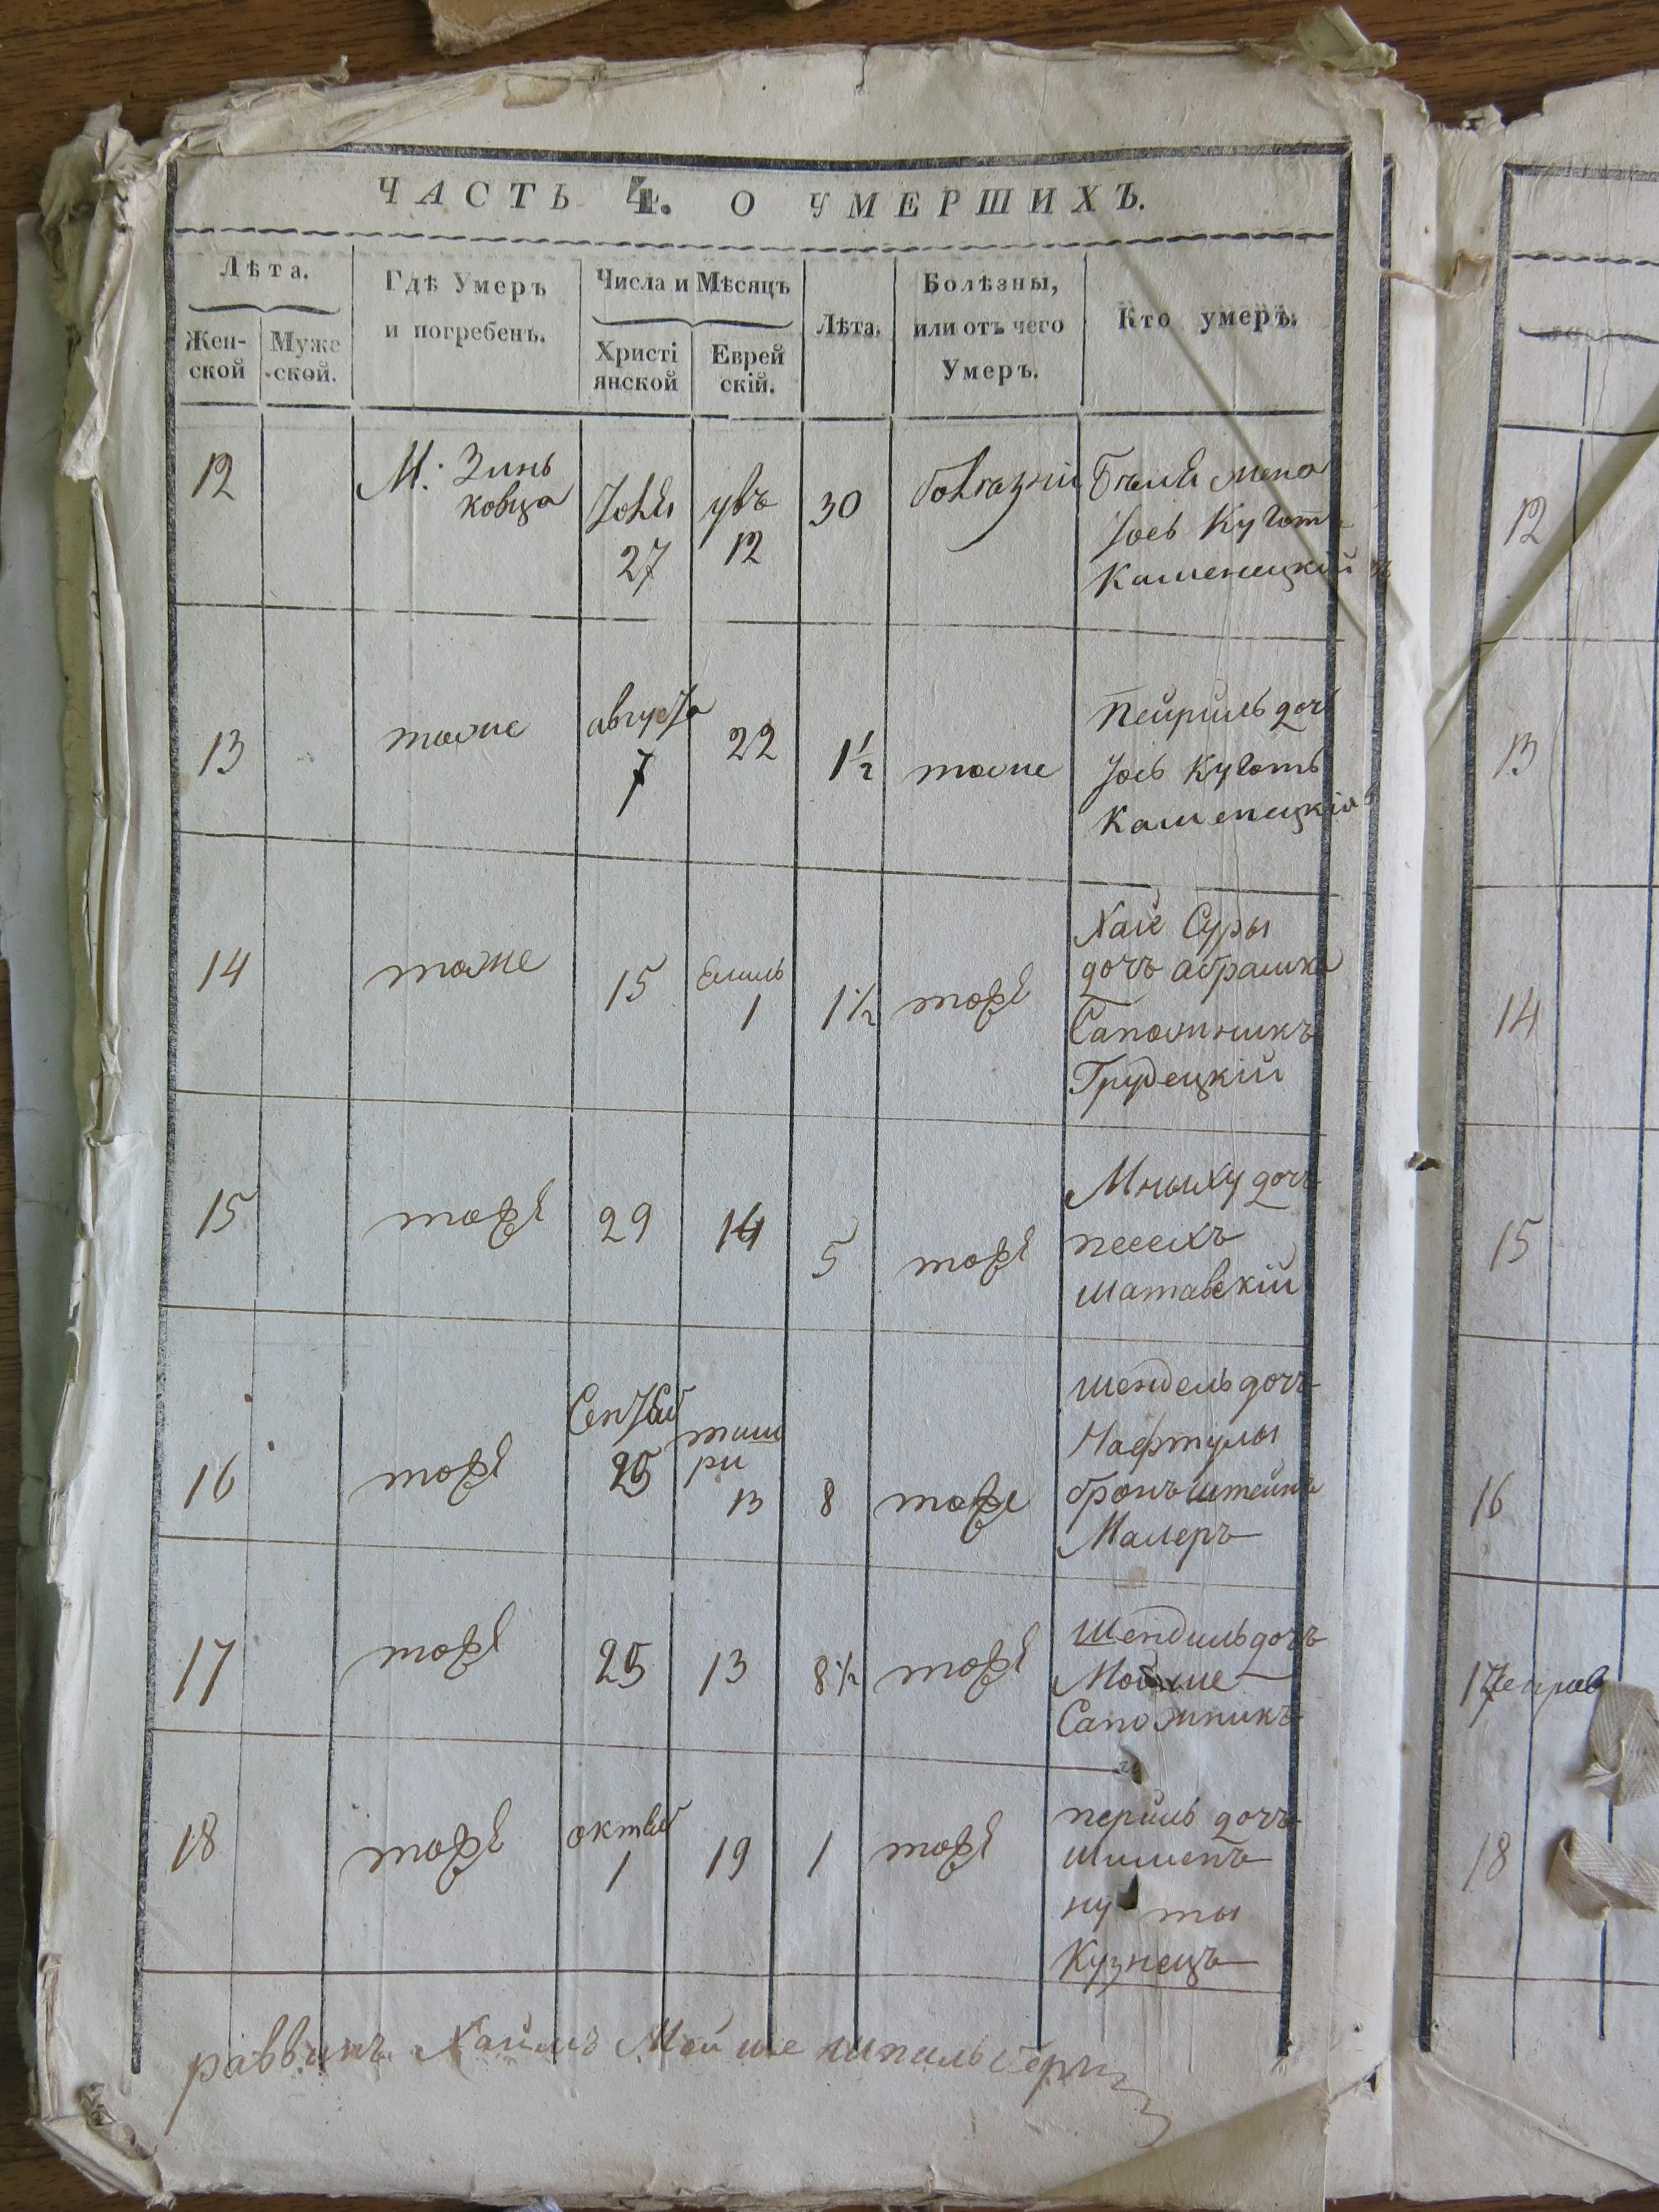 ЧАСТЬ 4. О УМЕРШИХЪ.
Лѣта.
Жен-
ской
Муже
-ской.
Гдѣ Умеръ
и погребенъ.
Числа и Мѣсяцъ
Христі
янской
Еврей
скій.
Лѣта.
Болѣзны,
или отъ чего
Умеръ.
Кто умеръ.
12
М: Зинь
ковца
27
12
30
жена
Іось
Каменецкій
13
тоже
августа
7
22
1 1/2
тоже
Пейриль доч
Іось
Каменецкій
14
тоже
15
Елиль
1
1 1/2
тоже
Хаи Суры
дочъ абрашка
Сапожникъ
Грудецкій
15
тоже
29
14
5
тоже
дочъ
песехъ
шатавскій
16
тоже
Сентяб
25
тиш
ри
13
8
тоже
шендель дочъ
Нафтулы
бронъштейнъ
Малеръ
17
тоже
25
13
8 1/2
тоже
Шендиль дочъ
Мошше
Сапожникъ
18
тоже
октяб
1
19
1
тоже
перйль дочъ
шименъ
ну ты
Кузнецъ
раввинъ Хаимъ Мойше
12
13
14
15
16
17
18